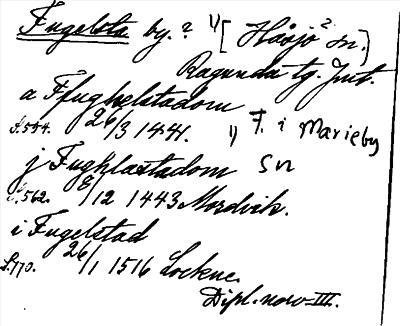 Fugelsta by. ? 1) [Håsjö 2 sn.]
Ragunda tg. Jmt.
a Ffughelstadom
S.554. 26/3 1441. 1) F. i Marieby sn
j Fughlastadom
S.562. 8/12 1443 Mordvik.
i Fugelstad
S.170. 26/1 1516 Lockne.
Dipl. norv. III.